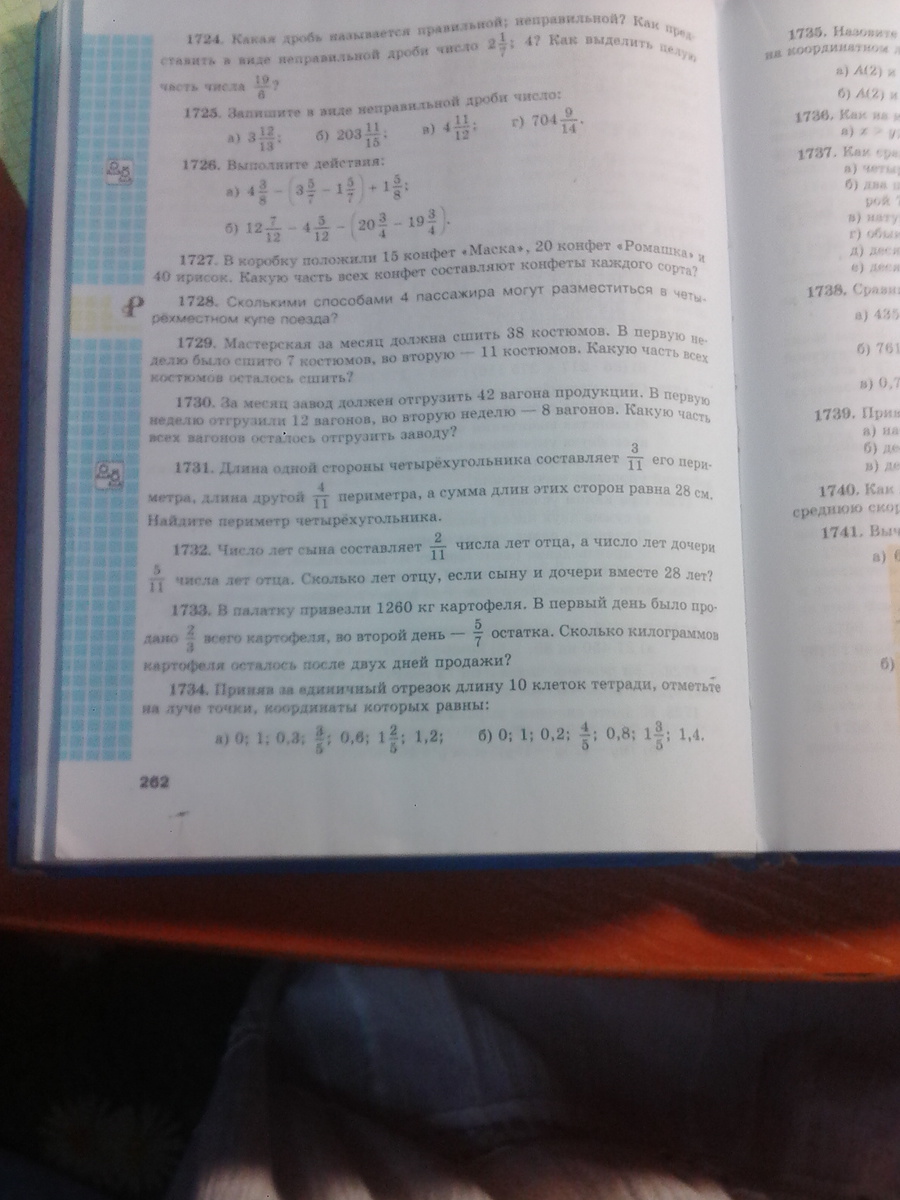 1724. Какая дробь называется правильной; неправильной? Как пред-
ставить в виде неправильной дроби число 2 1/7; 4? Как выделить целую
часть числа 19/6?
1725. Запишите в виде неправильной дроби число:
а) 3 12/13; б) 203 11/15; в) 4 11/12; г) 704 9/14.
1726. Выполните действия:
а) 4 3/8 − (3 5/7 − 1 5/7) + 1 5/8;
б) 12 7/12 − 4 5/12 − (20 3/4 − 19 3/4).
1727. В коробку положили 15 конфет «Маска», 20 конфет «Ромашка» и
40 ирисок. Какую часть всех конфет составляют конфеты каждого сорта?
1728. Сколькими способами 4 пассажира могут разместиться в четы-
рёхместном купе поезда?
1729. Мастерская за месяц должна сшить 38 костюмов. В первую не-
делю было сшито 7 костюмов, во вторую — 11 костюмов. Какую часть всех
костюмов осталось сшить?
1730. За месяц завод должен отгрузить 42 вагона продукции. В первую
неделю отгрузили 12 вагонов, во вторую неделю — 8 вагонов. Какую часть
всех вагонов осталось отгрузить заводу?
1731. Длина одной стороны четырёхугольника составляет 3/11 его пери-
метра, длина другой 4/11 периметра, а сумма длин этих сторон равна 28 см.
Найдите периметр четырёхугольника.
1732. Число лет сына составляет 2/11 числа лет отца, а число лет дочери
5/11 числа лет отца. Сколько лет отцу, если сыну и дочери вместе 28 лет?
1733. В палатку привезли 1260 кг картофеля. В первый день было про-
дано 2/3 всего картофеля, во второй день — 5/7 остатка. Сколько килограммов
картофеля осталось после двух дней продажи?
1734. Приняв за единичный отрезок длину 10 клеток тетради, отметьте
на луче точки, координаты которых равны:
а) 0; 1; 0,3; 3/5; 0,6; 1 2/5; 1,2; б) 0; 1; 0,2; 4/5; 0,8; 1 3/5; 1,4.
262
1735. Назовите
на координатном
а) A(2) и
б) A(2) и
1736. Как на
а) x > y
1737. Как
а)
б) два
рой
в)
г)
д)
е)
1738.
а) 435
б) 761
в) 0,7
1739.
а) на
б) де
в) де
1740. Как
среднюю
1741.
а) 6
б)